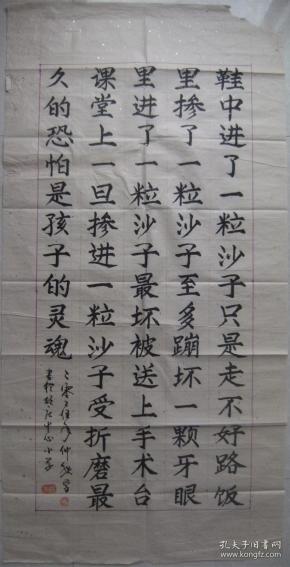 鞋中进了一粒沙子只是走不好路饭
里掺了一粒沙子至多蹦坏一颗牙眼
里进了一粒沙子最坏被送上手术台
课堂上一旦掺进一粒沙子受折磨最
久的恐怕是孩子的灵魂
中心小学
孔夫子旧书网